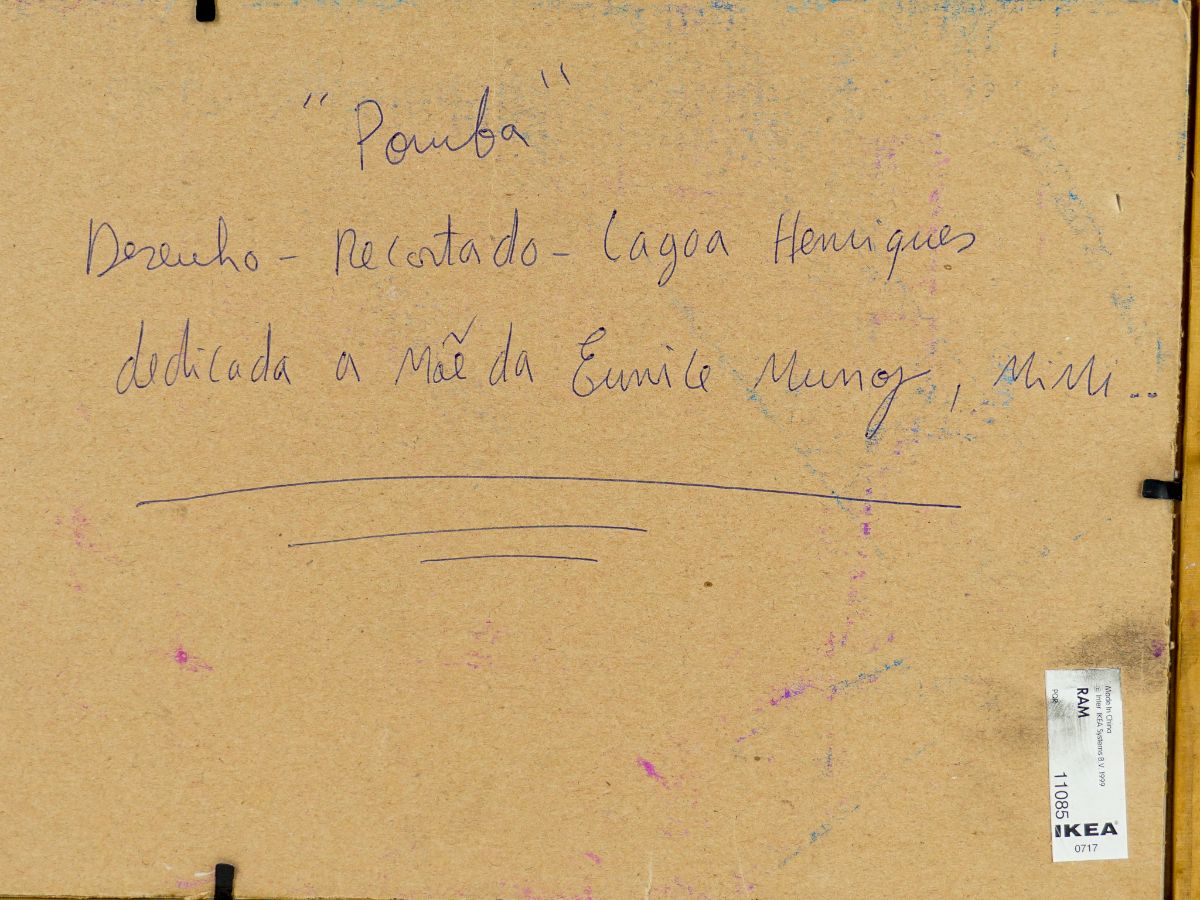 "Pomba"
Desenho - Recortado - Lagoa Henriques
dedicada a Mãe da Eunice Munoz, Mimi..
Made in China
© Inter IKEA Systems B.V. 1999
RAM
PQR
11085
IKEA
0717